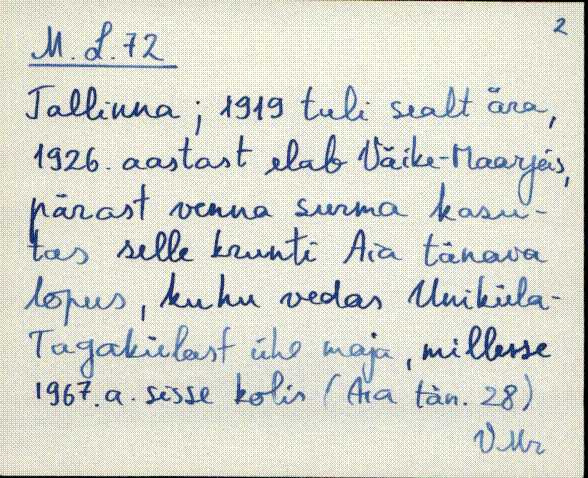 2
M. L. 72
Tallinna; 1919 tuli sealt ära,
1926. aastast elab Väike-Maarjas,
pärast venna surma kasu-
tas selle krunti Aia tänava
lõpus, kuhu vedas Uniküla-
Tagakülast ühe maja, millesse
1967. a. sisse kolis (Aia tän. 28)
V. Mr